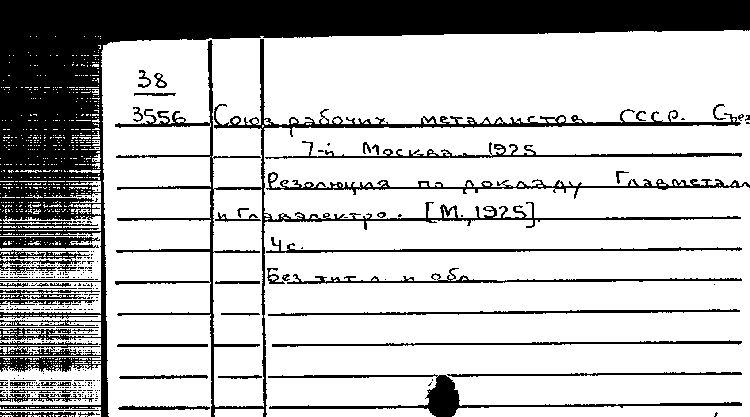 38
3556 Союз рабочих металлистов СССР. Съез
7-й. Москва. 1925
Резолюция по докладу Главметалл
и Главэлектро. [М., 1925].
4с.
Без тит. л. и обл.